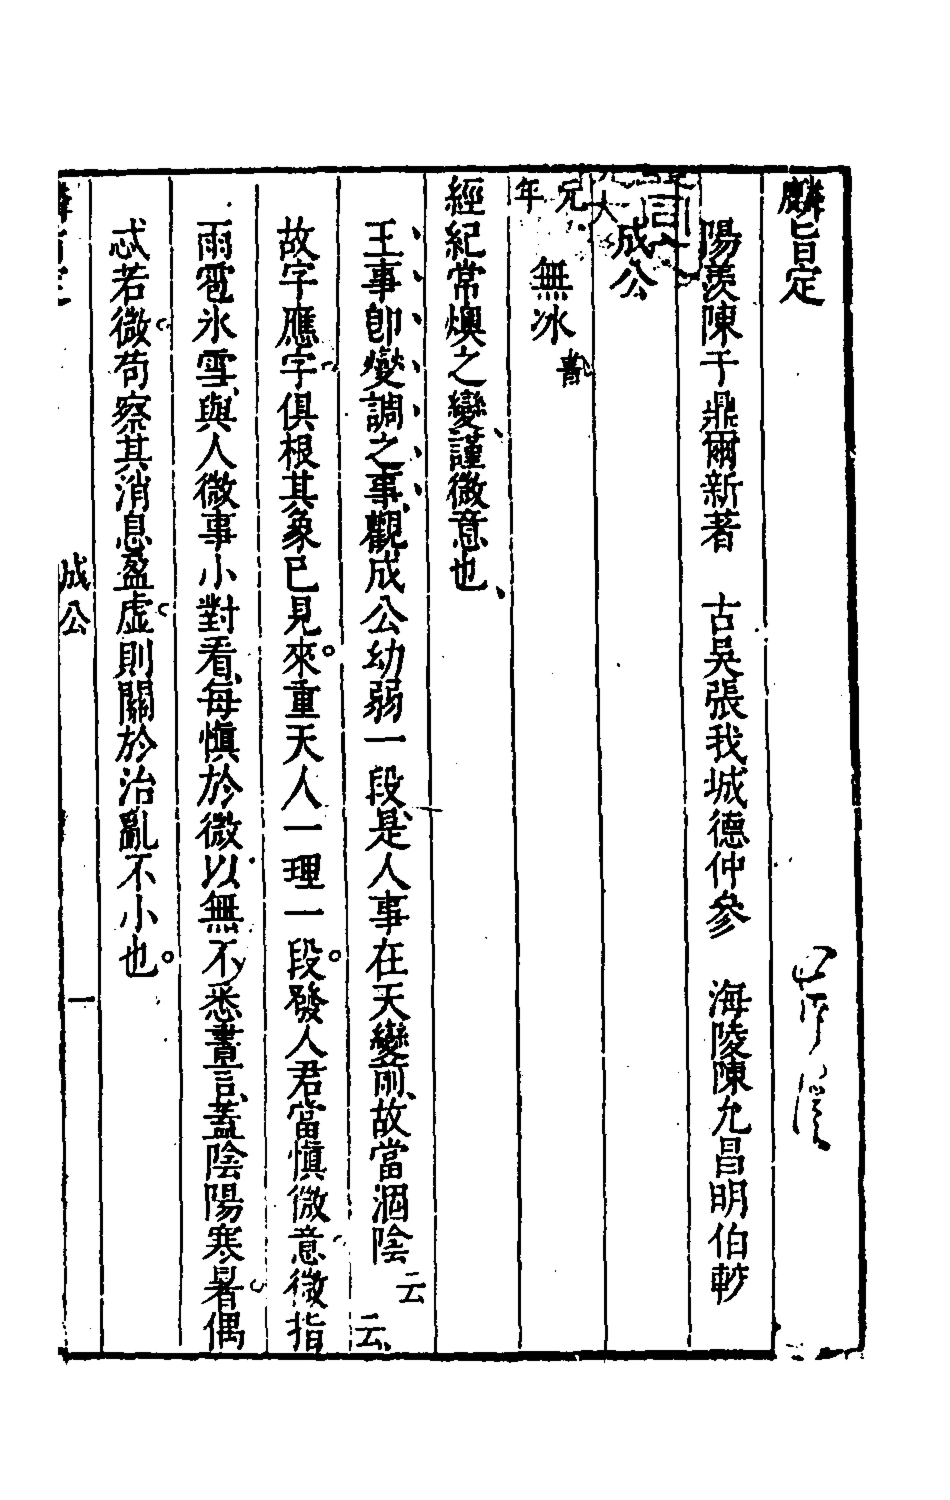 麟旨定
陽羨陳于鼎爾新著　古吳張我城德仲參　海陵陳允昌明伯較
成公
元年　無冰
經紀常燠之變謹微意也
王事卽變調之事觀成公幼弱一段是人事在天變前故當涸陰云云
故字應字俱根其象已見來重天人一理一段發人君當愼微意微指
雨雹冰雪與人微事小對看每愼於微以無不悉書言蓋陰陽寒暑偶
忒若微苟察其消息盈虛則關於治亂不小也
成公
一